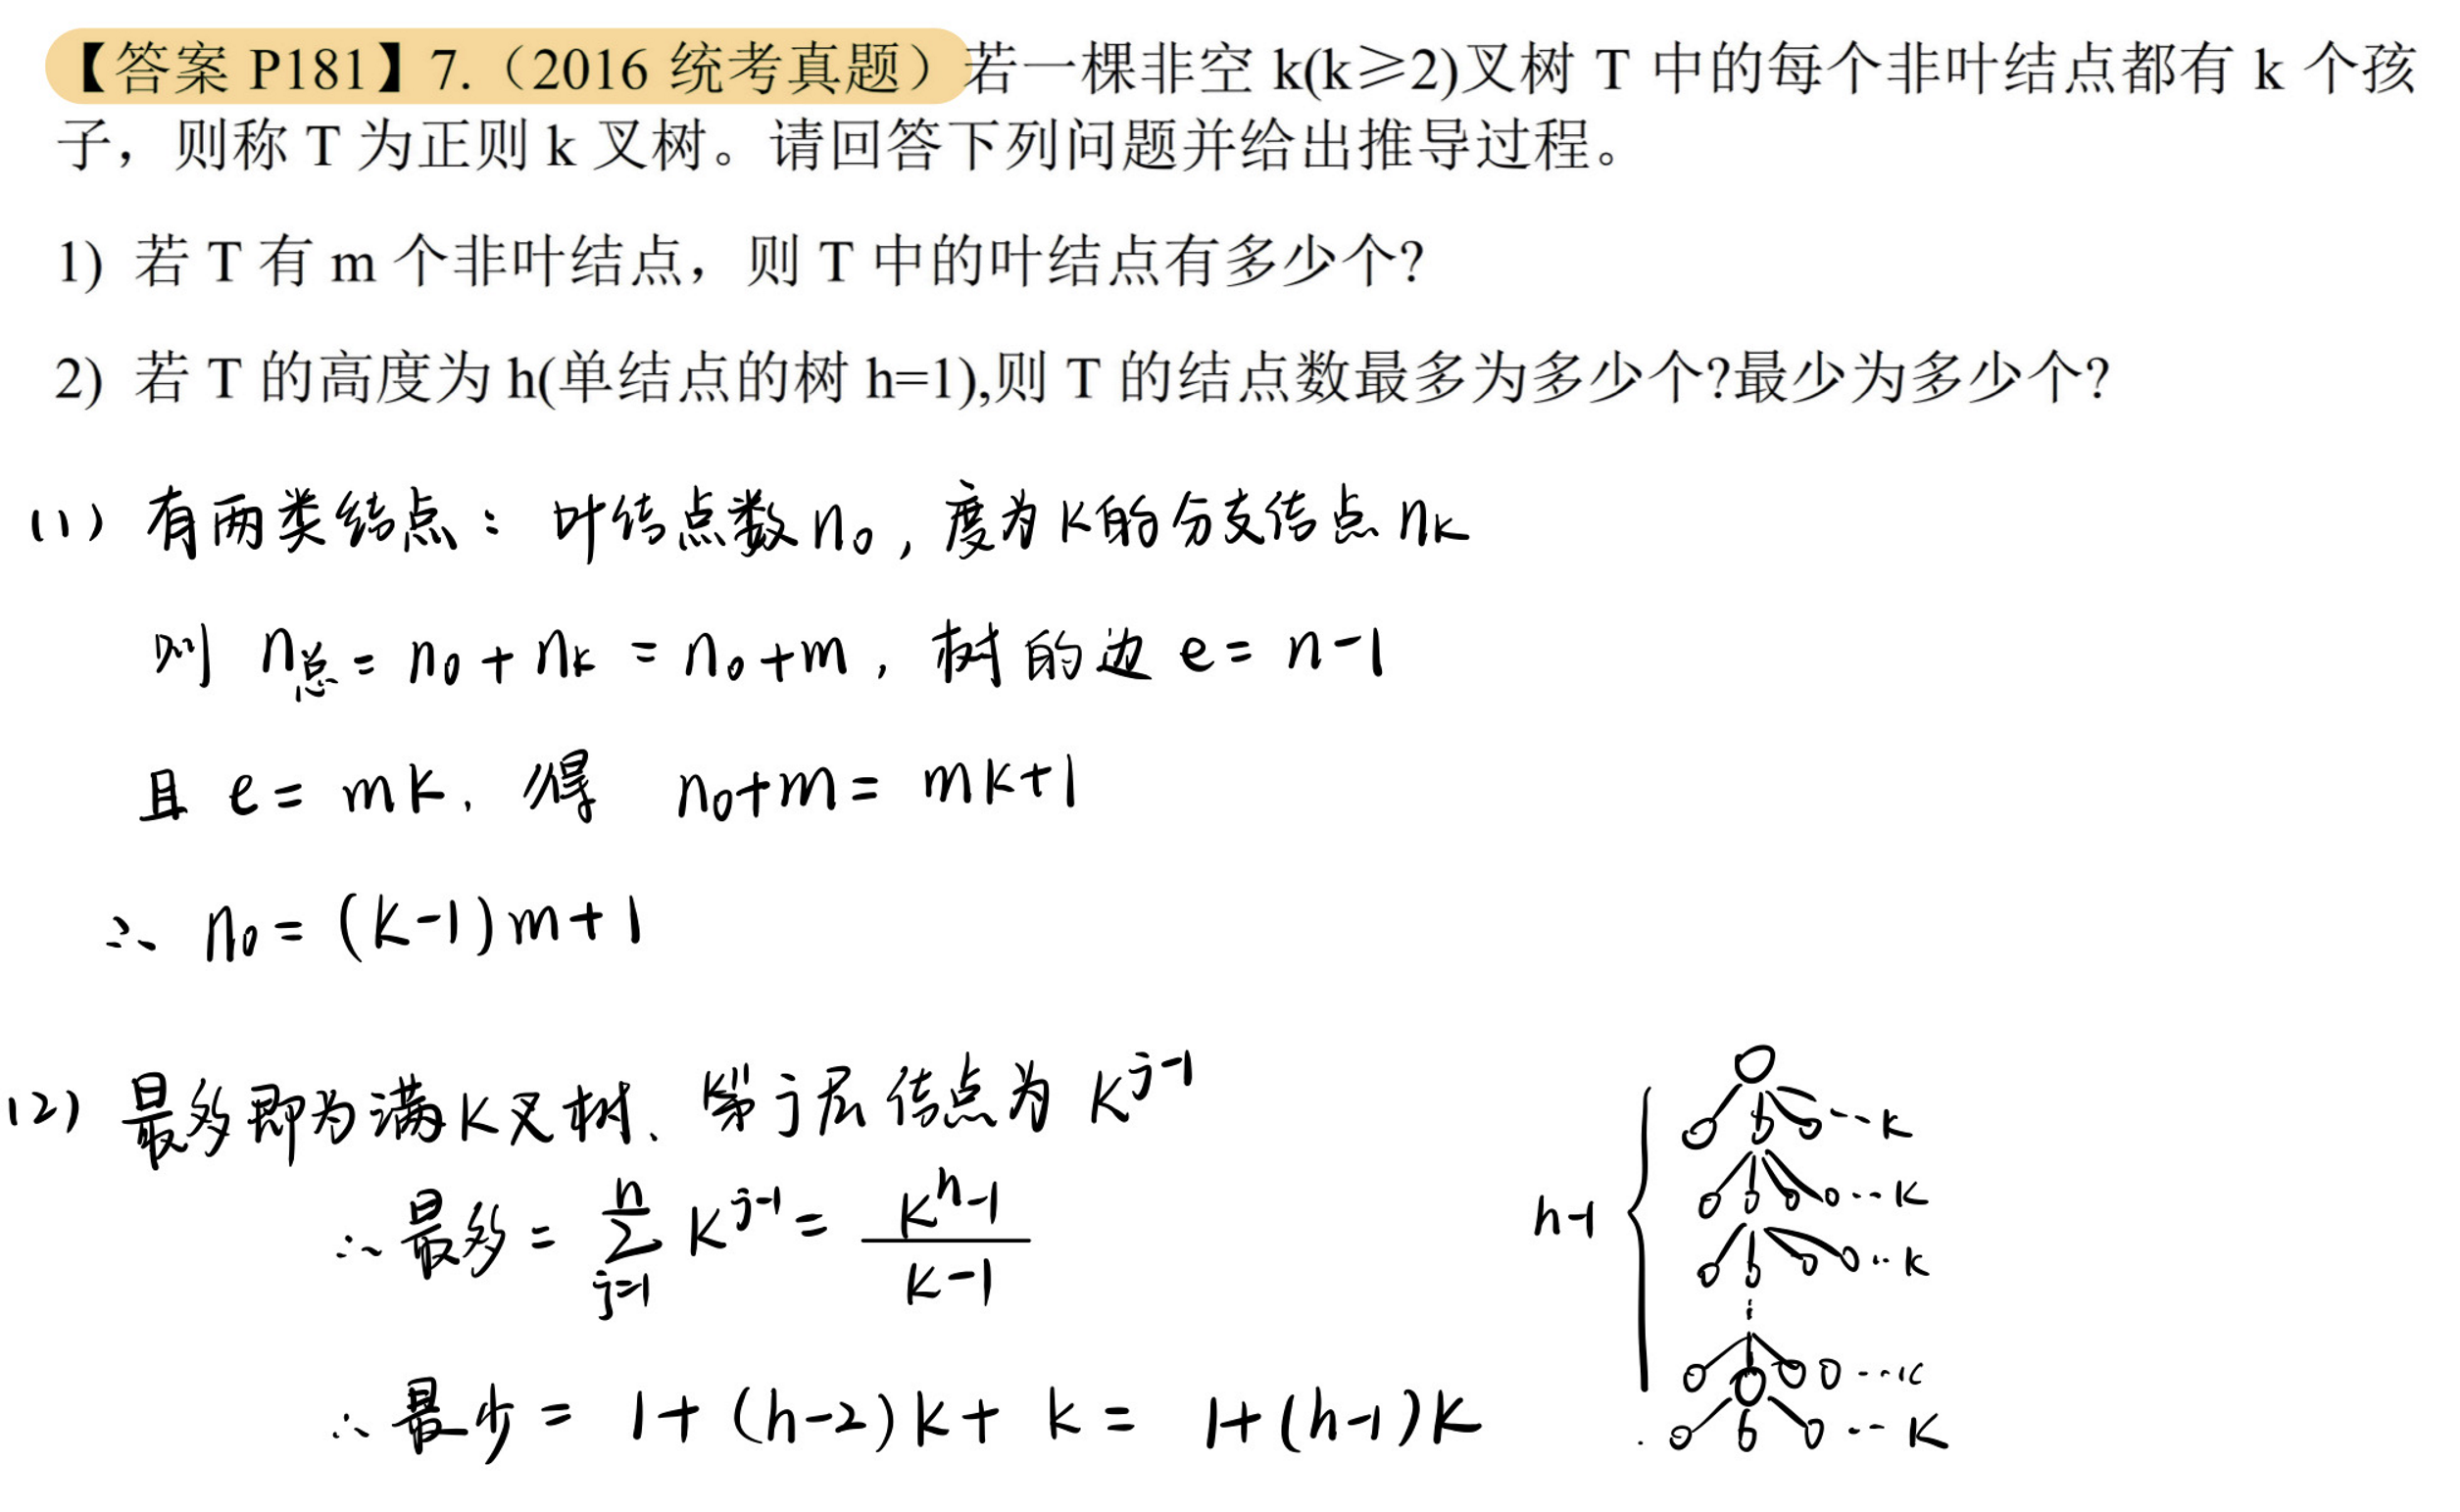 【答案 P181】7.（2016 统考真题）若一棵非空 k(k≥2)叉树 T 中的每个非叶结点都有 k 个孩
子，则称 T 为正则 k 叉树。请回答下列问题并给出推导过程。
1) 若 T 有 m 个非叶结点，则 T 中的叶结点有多少个?
2) 若 T 的高度为 h(单结点的树 h=1),则 T 的结点数最多为多少个?最少为多少个?
(1) 有两类结点：叶结点数 n₀，度为K的分支结点 nₖ
则 n总 = n₀ + nₖ = n₀+m，树的边 e = n-1
且 e = mk，得 n₀+m = mk+1
∴ n₀ = (k-1)m+1
(2) 最多即为满K叉树、第j层结点为 K^(j-1)
∴ 最多 = ∑_(j=1)^h K^(j-1) = (K^h-1)/(K-1)
∴ 最少 = 1+(h-2)k+k = 1+(h-1)k
h-1
--k
--k
--k
---k
--K